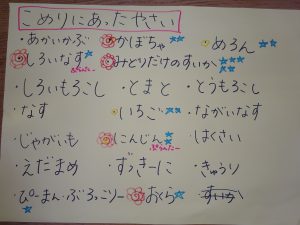 こめりにあったやさい
・あかいかぶ かぼちゃ ・めろん
・しろいなす みどりだけのすいか
ぷらんたー
・しろいもろこし ・とまと ・とうもろこし
・なす ・いちご ・ながいなす
・じゃがいも にんじん ・はくさい
ぷらんたー
・えだまめ ・ずっきーに ・きゅうり
・ぴーまん・ぶろっこりー おくら